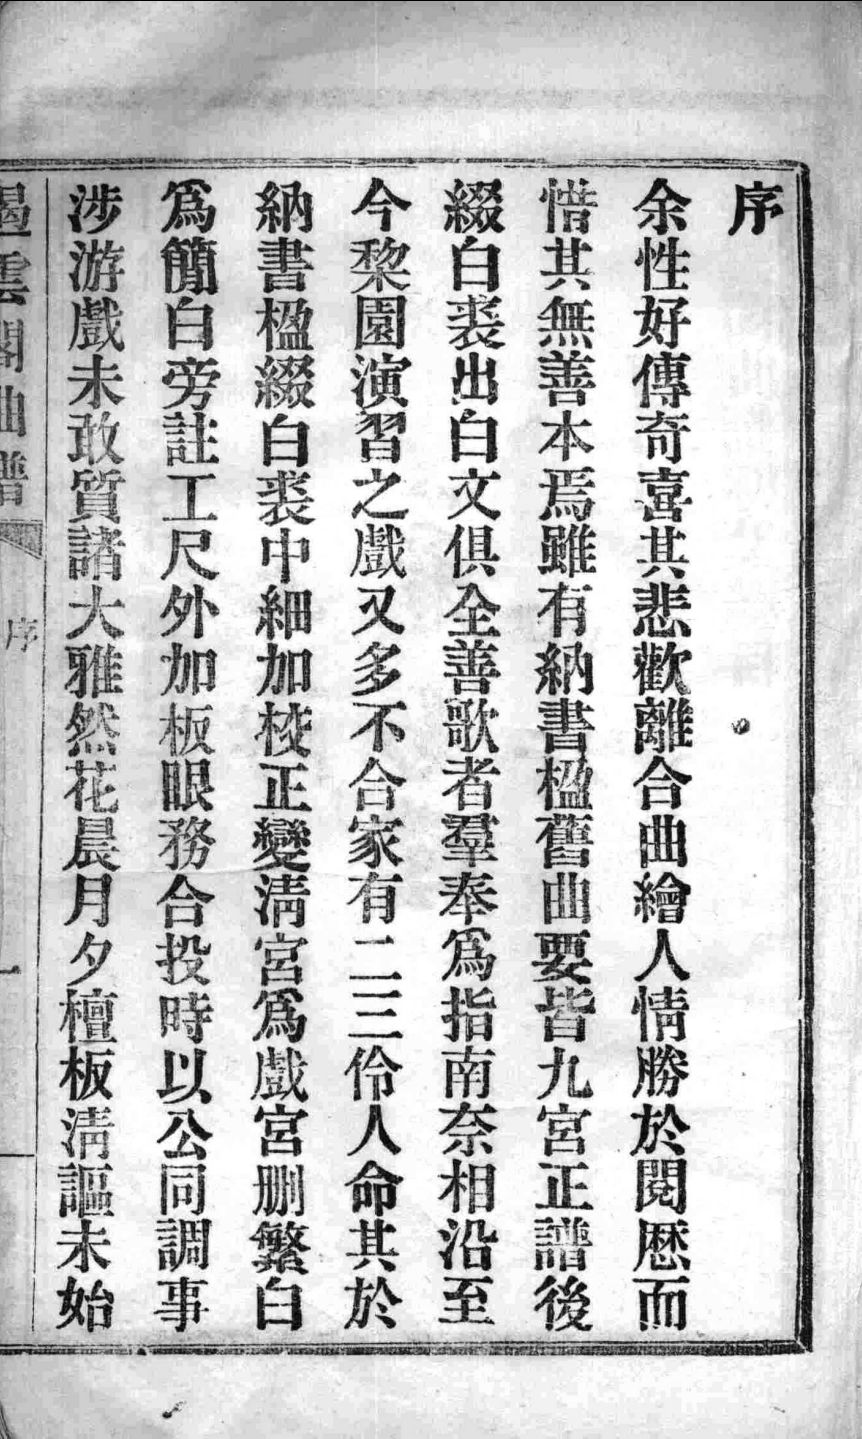 序
余性好傳奇喜其悲歡離合曲繪人情勝於閱歷而
惜其無善本焉雖有納書楹舊曲要皆九宮正譜後
綴白裘出白文俱全善歌者羣奉爲指南奈相沿至
今棃園演習之戲又多不合家有二三伶人命其於
納書楹綴白裘中細加校正變淸宮爲戲宮删繁白
爲簡白旁註工尺外加板眼務合投時以公同調事
涉游戲未敢質諸大雅然花晨月夕檀板淸謳未始
遏雲閣曲譜 序 一